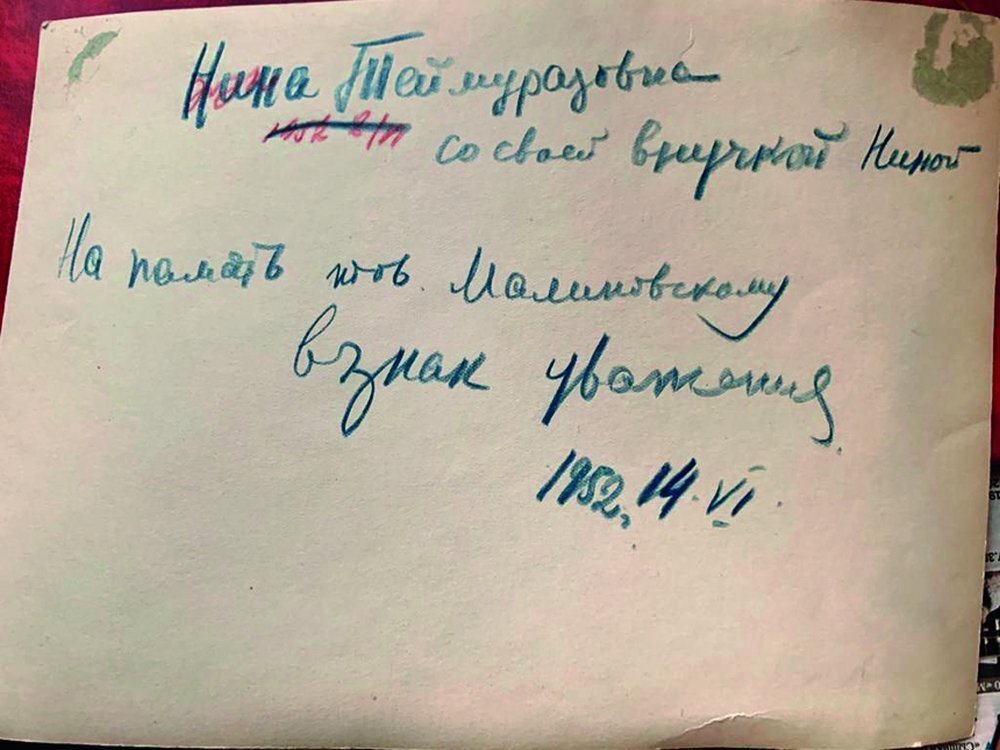 Нина Теймуразовна
со своей внучкой Ниной
На память тов. Малиновскому
в знак уважения
1952. 14. VI.